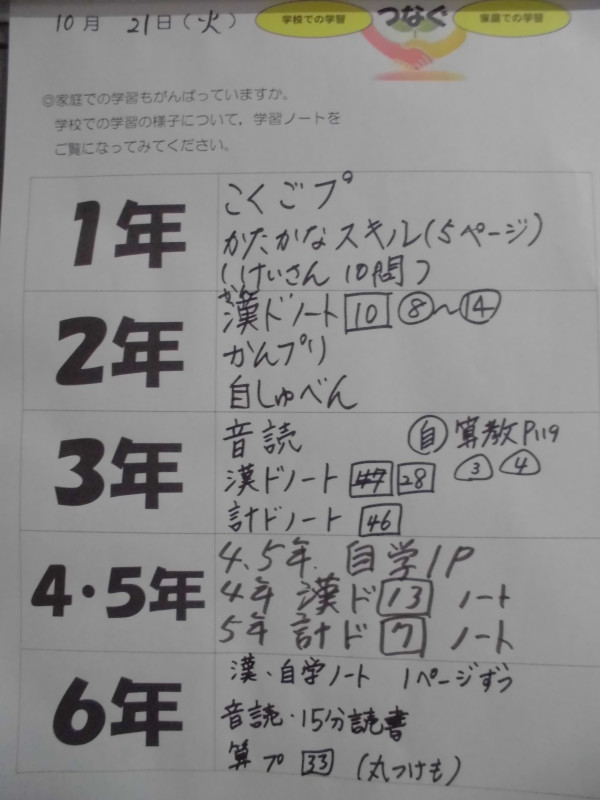 10月 21日(火)
学校での学習 つなぐ 家庭での学習
◎家庭での学習もがんばっていますか。
学校での学習の様子について,学習ノートを
ご覧になってみてください。
1年
こくごプ
かたかなスキル(5ページ)
(けいさん 10問)
2年
かん
漢ドノート 10 ⑧~⑭
かんプリ
自しゅべん
3年
音読 自 算教P119
漢ドノート 47 28 ③ ④
計ドノート 46
4・5年
4.5年. 自学1P
4年 漢ド13 ノート
5年 計ド7 ノート
6年
漢・自学ノート 1ページずつ
音読・15分読書
算プ 33 (丸つけも)